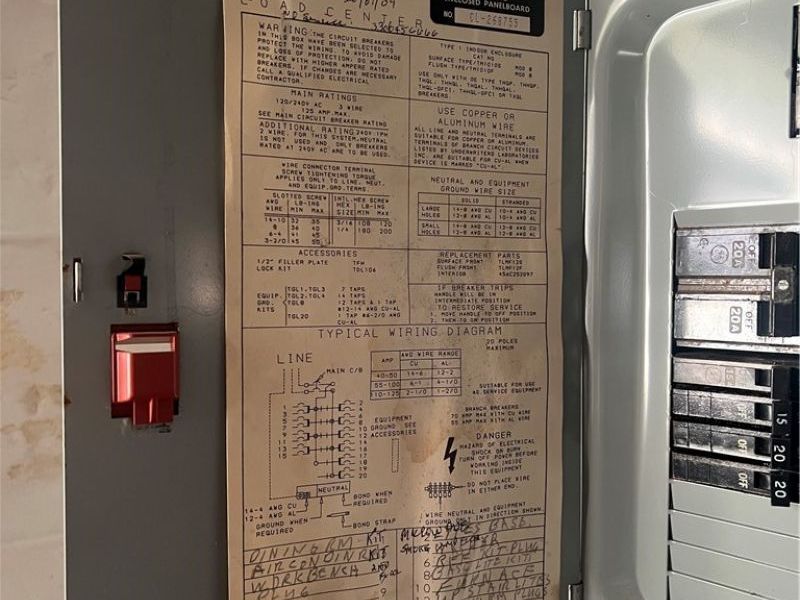 LOAD CENTER
ENCLOSED PANELBOARD
NO CL-268755
WARNING: THE CIRCUIT BREAKERS
IN THIS BOX HAVE BEEN SELECTED TO
PROTECT THE WIRING. TO AVOID DAMAGE
AND LOSS OF PROTECTION, DO NOT
REPLACE WITH HIGHER AMPERE RATED
BREAKERS. IF CHANGES ARE NECESSARY
CALL A QUALIFIED ELECTRICAL
CONTRACTOR.
TYPE 1 INDOOR ENCLOSURE
CAT NO
SURFACE TYPE/TM1010S MOD
FLUSH TYPE/TM1010F MOD
USE ONLY WITH GE TYPE THQP, THHQP,
BREAKERS
MAIN RATINGS
120/240V AC 3 WIRE
125 AMP.MAX.
SEE MAIN CIRCUIT BREAKER RATING
ADDITIONAL RATING 240V 1PH
2 WIRE. FOR THIS SYSTEM, NEUTRAL
IS NOT USED AND ONLY BREAKERS
RATED AT 240V AC ARE TO BE USED.
USE COPPER OR
ALUMINUM WIRE
ALL LINE AND NEUTRAL TERMINALS ARE
SUITABLE FOR COPPER OR ALUMINUM.
TERMINALS OF BRANCH CIRCUIT DEVICES
LISTED BY UNDERWRITERS LABORATORIES
INC. ARE SUITABLE FOR CU-AL WHEN
DEVICE IS MARKED "CU-AL".
WIRE CONNECTOR TERMINAL
SCREW TIGHTENING TORQUE
APPLIES ONLY TO LINE, NEUT.
AND EQUIP.GRD.TERMS.
SLOTTED SCREW INTL.HEX SCREW
AWG LB-INS HEX LB-INS
WIRE MIN MAX SIZE MIN MAX
14-10 32 35 3/16 108 120
8 36 40 1/4 180 200
6-4 41 45
3-2/0 45 50
NEUTRAL AND EQUIPMENT
GROUND WIRE SIZE
SOLID STRANDED
LARGE 14-8 AWG CU 10-4 AWG CU
HOLES 12-8 AWG AL 10-4 AWG AL
SMALL 14-8 AWG CU
HOLES 12-8 AWG AL
ACCESSORIES
1/2" FILLER PLATE TFP
LOCK KIT TQL106
TGL1,TGL3 7 TAPS
EQUIP. TGL2,TGL4 14 TAPS
GRD. TGL8 12 TAPS & 1 TAP
KITS #12-14 AWG CU-AL
TGL20 1 TAP #4-2/0 AWG
CU-AL
REPLACEMENT PARTS
SURFACE FRONT
FLUSH FRONT
INTERIOR
IF BREAKER TRIPS
HANDLE WILL BE IN
INTERMEDIATE POSITION
TO RESTORE SERVICE
1. MOVE HANDLE TO OFF POSITION
2. THEN TO ON POSITION
TYPICAL WIRING DIAGRAM
20 POLES
MAXIMUM
LINE
MAIN C/B
AMP AWG WIRE RANGE
CU AL
40-50 14-6 12-2
55-100 4-1/0
110-125 2-1/0 1-2/0
SUITABLE FOR USE
AS SERVICE EQUIPMENT
1 2
3 4
5 6
7 8
9 10
11 12
13 14
15 16
17
18
19
20
EQUIPMENT
GROUND SEE
ACCESSORIES
BRANCH BREAKERS
70 AMP MAX WITH CU WIRE
55 AMP MAX WITH AL WIRE
DANGER
HAZARD OF ELECTRICAL
SHOCK OR BURN
TURN OFF POWER BEFORE
WORKING INSIDE
THIS EQUIPMENT
NEUTRAL
DO NOT PLACE WIRE
IN EITHER END.
14-4 AWG CU
12-4 AWG AL
BOND WHEN
REQUIRED
GROUND WHEN
REQUIRED
BOND STRAP
WIRE NEUTRAL AND EQUIPMENT
GROUND IN DIRECTION SHOWN.
DINING RM KIT
AIRCONDIN KIT
WORKBENCH
PLUG
9
BASE
SMOKE
6 REF KIT PLUG
8 BASE LITE KIT
10 FURNACE
UPSTAIR LITES
PLUGS
OFF
20A
20A
OFF
OFF
OFF
15
20
20